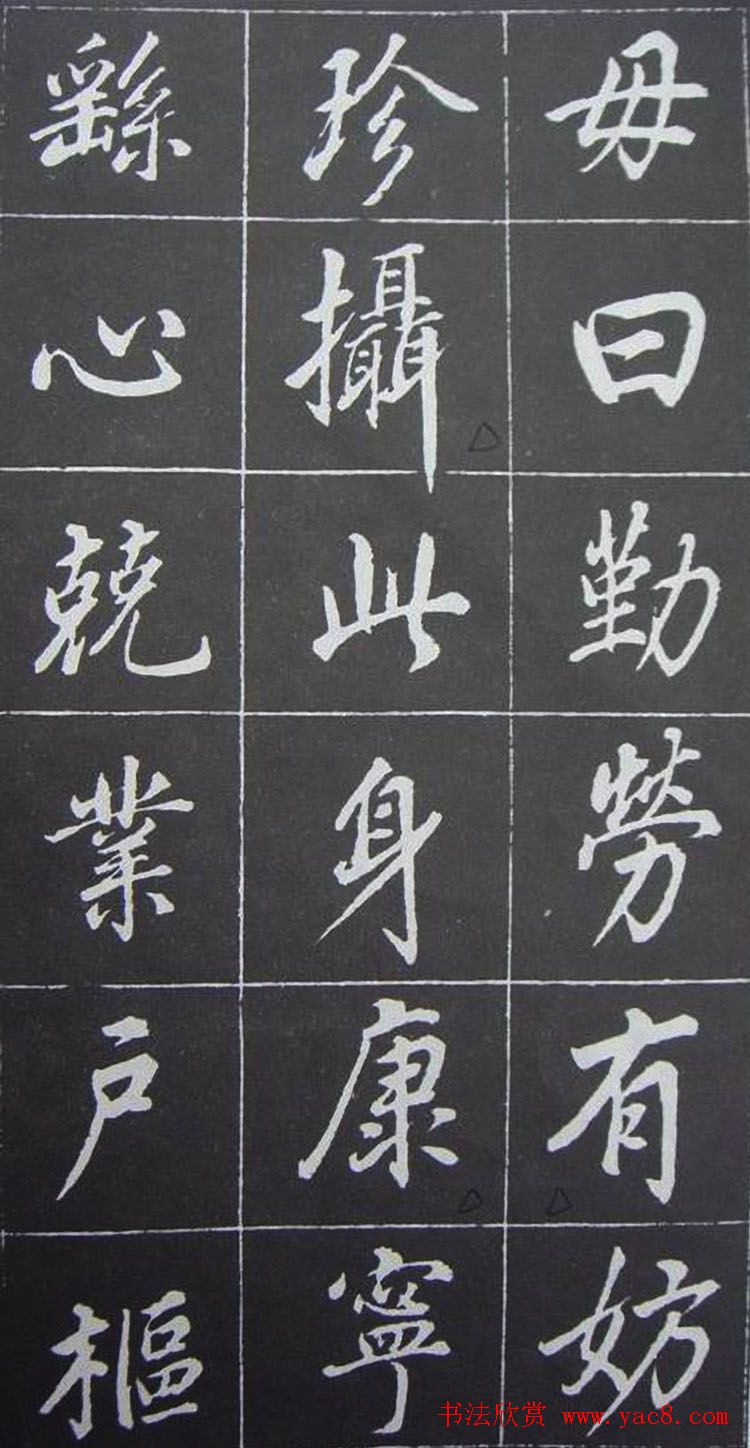 毋曰勤勞有妨
珍攝此身康寧
繇心兢業户樞
书法欣赏 www.yac8.com